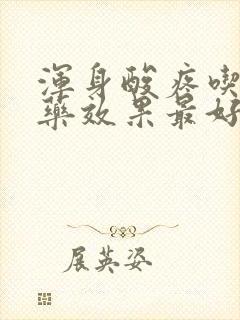 渾身酸疼喫
藥效果最好
展英姿